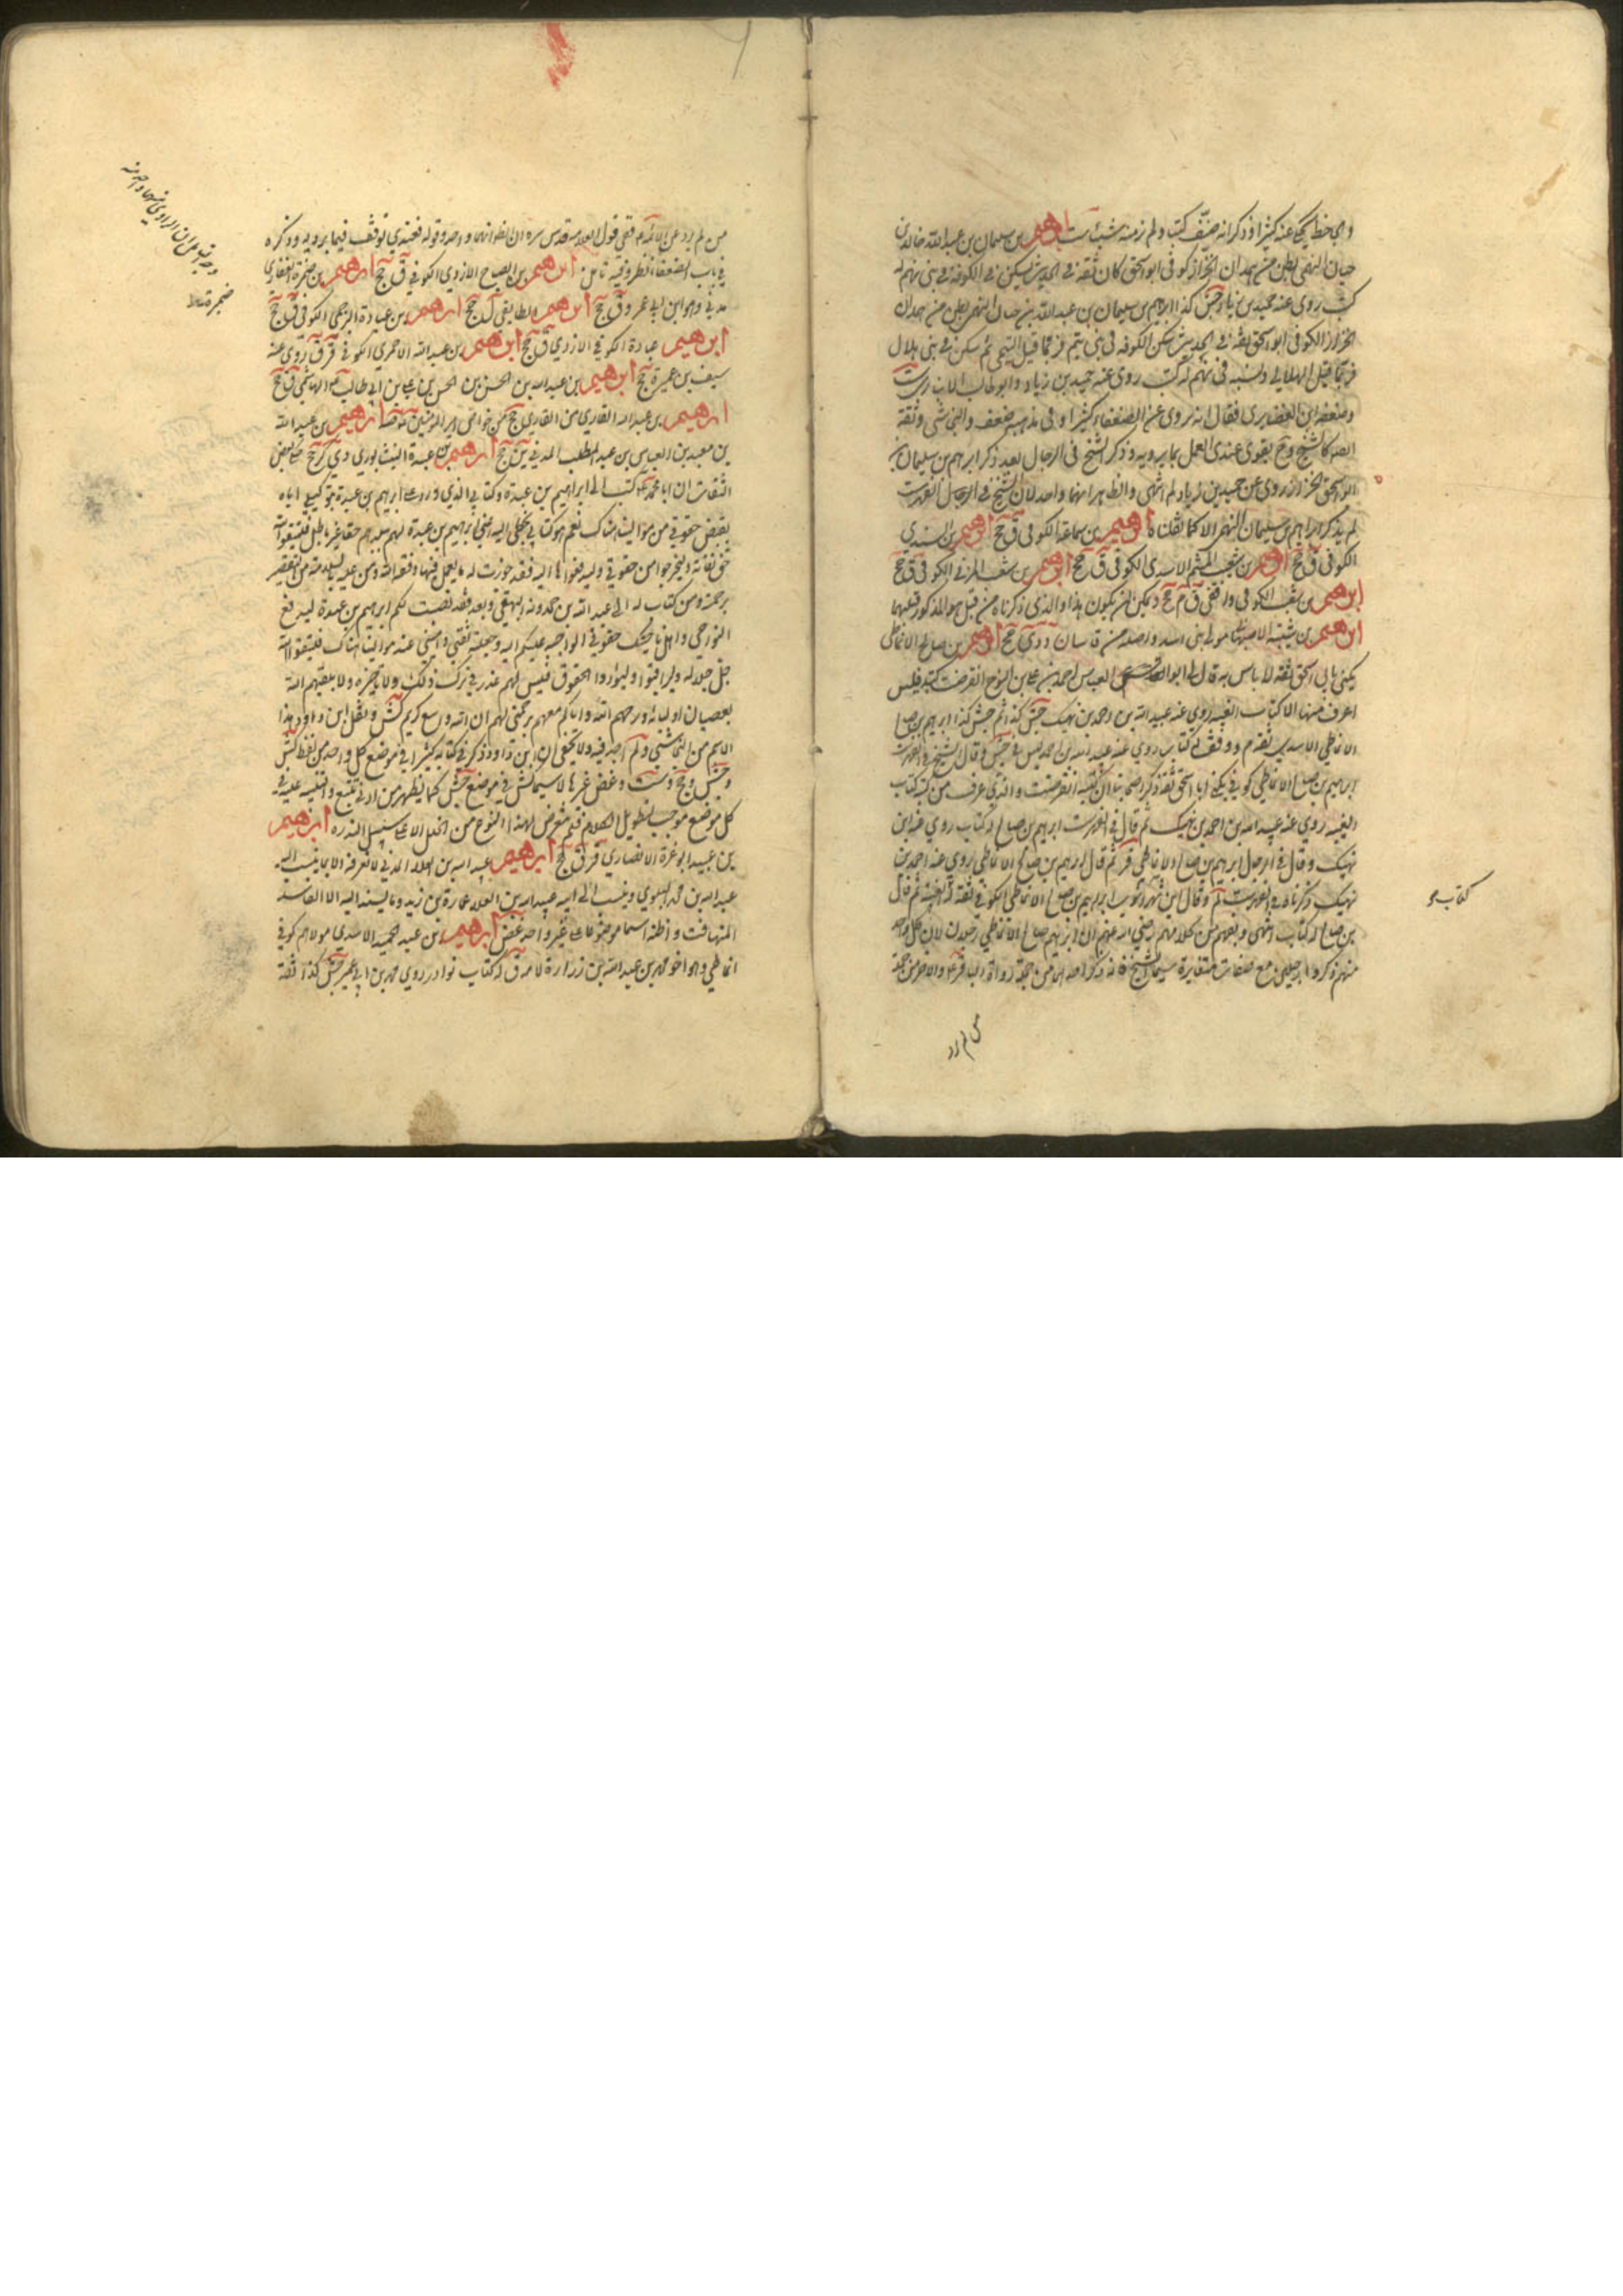 الجاحظ يحكي عنه كثيرا وذكر انه صنف كتبا ولم نر منه شيئا ست ابرهيم بن سليمان بن عبد الله خالد بن
حيان النهمي بطن من همدان الخزاز كوفي ابو اسحق كان ثقة في الحديث يسكن في الكوفة في بني نهم له
كتب روى عنه حميد بن زياد جش كذا ابراهيم بن سليمان بن عبد الله بن حيان النهمي بطن من همدان
الخزاز الكوفي ابو اسحق ثقة في الحديث سكن الكوفة في بني تيم فربما قيل التيمي ثم سكن في بني هلال
فربما قيل الهلالي ونسبه في نهم له كتب روى عنه حميد بن زياد وابو طالب الانباري ست
وضعفه ابن الغضايري فقال انه يروي عن الضعفاء كثيرا وفي مذهبه ضعف والنجاشي وثقه
ايضا كالشيخ وح يقوى عندي العمل بما يرويه وذكر الشيخ في الرجال بعد ذكر ابراهيم بن سليمان بن
ابو اسحق الخزاز روى عن حميد بن زياد لم انتهى والظاهر انهما واحد لان الشيخ في الفهرست
لم يذكر ابراهيم بن سليمان النهمي الا كما نقلناه ابرهيم بن سماعة الكوفي ق جخ ابرهيم بن السندي
الكوفي ق جخ ابرهيم بن شعيب الميثم الاسدي الكوفي ق جخ ابرهيم بن شعيب المزني الكوفي ق جخ
ابرهيم بن شعيب الكوفي واقفي ق م جخ ويمكن ان يكون هذا والذي ذكرناه من قبل هو المذكور قبلهما
ابرهيم بن شيبة الاصبهاني مولى بني اسد واصله من قاسان د دي جخ ابرهيم بن صالح الانماطي
يكنى بابي اسحق ثقة لا باس به قال لي ابو العباس احمد بن علي بن نوح انقرضت كتبه فليس
اعرف منها الا كتاب الغيبة روى عنه عبيد الله بن احمد بن نهيك جش كذا ثم جش كذا ابراهيم بن صالح
الانماطي الاسدي ثقة م ووقف له كتاب روى عنه عبيد الله بن احمد جش وقال الشيخ في الفهرست
ابراهيم بن صالح الانماطي كوفي يكنى ابا اسحق ثقة ذكر اصحابنا ان كتبه انقرضت والذي عرف من كتبه كتاب
الغيبة روى عنه عبيد الله بن احمد بن نهيك ثم قال في الفهرست ابراهيم بن صالح له كتاب روى عنه ابن
نهيك وقال في الرجال ابراهيم بن صالح الانماطي قر ثم قال ابراهيم بن صالح الانماطي روى عنه احمد بن
نهيك ذكرناه في الفهرست لم وقال ابن شهراشوب ابراهيم بن صالح الانماطي الكوفي ثقة له الغيبة ثم قال
بن صالح له كتاب انتهى ويفهم من كلامهم رضي الله عنهم ان ابرهيم صالح الانماطي رجلان لان كل واحد
منهم ذكروا رجلين مع صفات متغايرة سيما الشيخ فانه ذكر احدهما من جملة رواة الباقر ع والاخر من جملة
من لم يرد
كتابه
من لم يرد عن الائمة ع ففي قول العلامة قدس سره ان الظ انهما واحد وقوله فعندي توقف فيما يرويه وذكره
في باب الضعفاء نظر وفيه تامل ابرهيم بن الصباح الازدي الكوفي ق جخ ابرهيم بن ضمرة الغفاري
مدني وهو ابن ابي عمرو ق جخ ابرهيم الطايفي ل جخ ابرهيم بن عبادة البرجمي الكوفي ق جخ
ابرهيم عبادة الكوفي الازدي ق جخ ابرهيم بن عبد الله الاحمري الكوفي قر ق روى عنه
سيف بن عميرة جخ ابرهيم بن عبد الله بن الحسن بن الحسن بن علي بن ابي طالب ع الهاشمي ق جخ
ابرهيم بن عبد الله القاري من القارة ي جخ من خواص امير المؤمنين ع قي ابرهيم بن عبد الله
بن معبد بن العباس بن عبد المطلب المدني ين جخ ابرهيم بن عبدة النيشابوري دي كر جخ حكى بعض
الثقات ان ابا محمد ع كتب الى ابراهيم بن عبدة وكتابي الذي ورد على ابراهيم بن عبدة بتوكيلي اياه
بقبض حقوقي من موالينا هناك نعم هو كتابي بخطي اليه اقمته اعني ابراهيم بن عبدة لهم ببلدهم حقا غير باطل فليتقوا الله
حق تقاته وليخرجوا من حقوقي وليدفعوها اليه فقد جوزت له ما يعمل فيها وفقه الله ومن عليه بالسلامة من التقصير
برحمته ومن كتاب له الى عبد الله بن حمدويه البيهقي وبعد فقد نصبت لكم ابراهيم بن عبدة ليدفع
النواحي واهل ناحيتك حقوقي الواجبة عليكم اليه وجعلته ثقتي واميني عند موالينا هناك فليتقوا الله
جل جلاله وليراقبوا وليؤدوا الحقوق فليس لهم عذر في ترك ذلك ولا تاخيره ولا يشقيهم الله
بعصيان اوليائه ورحمهم الله واياك معهم برحمتي لهم ان الله واسع كريم كش ونقل ابن داود هذا
الاسم من النجاشي ولم اجده فيه ولا يخفى ان ابن داود ذكر في كتابه كثيرا في موضع كل واحد من لفظ كش
وجش وجخ وست وغض غيرها لا سيما كش في موضع جش كما يظهر من ادنى تتبع والتنبيه عليه في
كل موضع موجب لتطويل الكلام فلم نتعرض لهذا النوع من الخلل الا على سبيل الندرة ابرهيم
بن عبيد ابو غرة الانصاري قر ق جخ ابرهيم عبيد الله بن العلاء المدني لا نعرفه الا بما ينسب اليه
عبد الله بن محمد البلوي وينسب الى ابيه عبيد الله بن العلاء عمارة بن زيد وما يسند اليه الا الفاسد
المتهافت واظنه اسما موضوعا على غير واحد غض ابرهيم بن عبد الحميد الاسدي مولاهم كوفي
انماطي وهو اخو محمد بن عبد الله بن زرارة لامه ق له كتاب نوادر روى محمد بن ابي عمير جش كذا ثقة